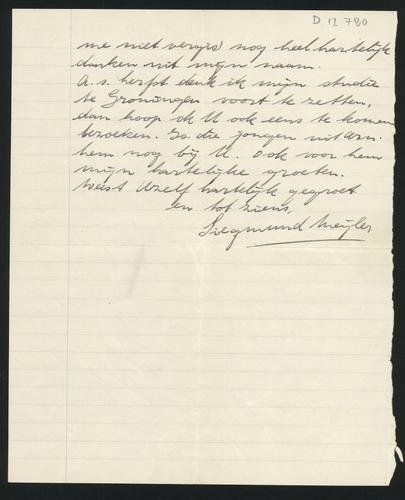 D 12 780
me niet vergis nog heel hartelijk
danken uit mijn naam.
A.s. herfst denk ik mijn studie
te Groningen voort te zetten,
dan hoop ik U ook eens te komen
bezoeken. Is die jongen uit Arn-
hem nog bij U. Ook voor hem
mijn hartelijke groeten.
Weest Uzelf hartelijk gegroet
en tot ziens,
Siegmund Meijler